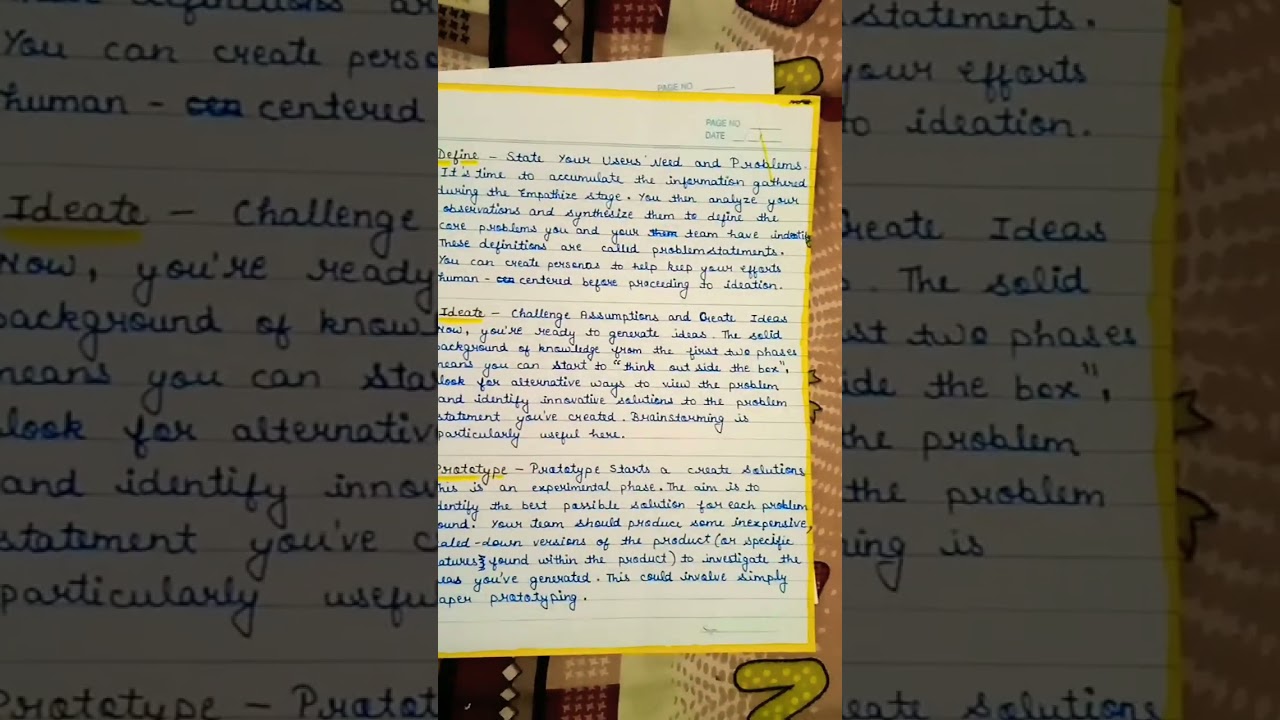 PAGE NO
PAGE NO.
DATE
Define - State Your Users' Need and Problems.
It's time to accumulate the information gathered
during the Empathize stage. You then analyze your
observations and synthesize them to define the
core problems you and your team have
These definitions are called problem statements.
You can create personas to help keep your efforts
human - centered before proceeding to ideation.
Ideate - Challenge Assumptions and Create Ideas
Now, you're ready to generate ideas. The solid
background of knowledge from the first two phases
means you can start to "think out side the box",
look for alternative ways to view the problem
and identify innovative solutions to the problem
statement you've created. Brainstorming is
particularly useful here.
Prototype - Prototype Starts a create solutions
his is an experimental phase. The aim is to
dentify the best possible solution for each problem
ound. Your team should produce some inexpensive,
aled-down versions of the product (or specific
atures found within the product) to investigate the
eas you've generated. This could involve simply
aper prototyping.